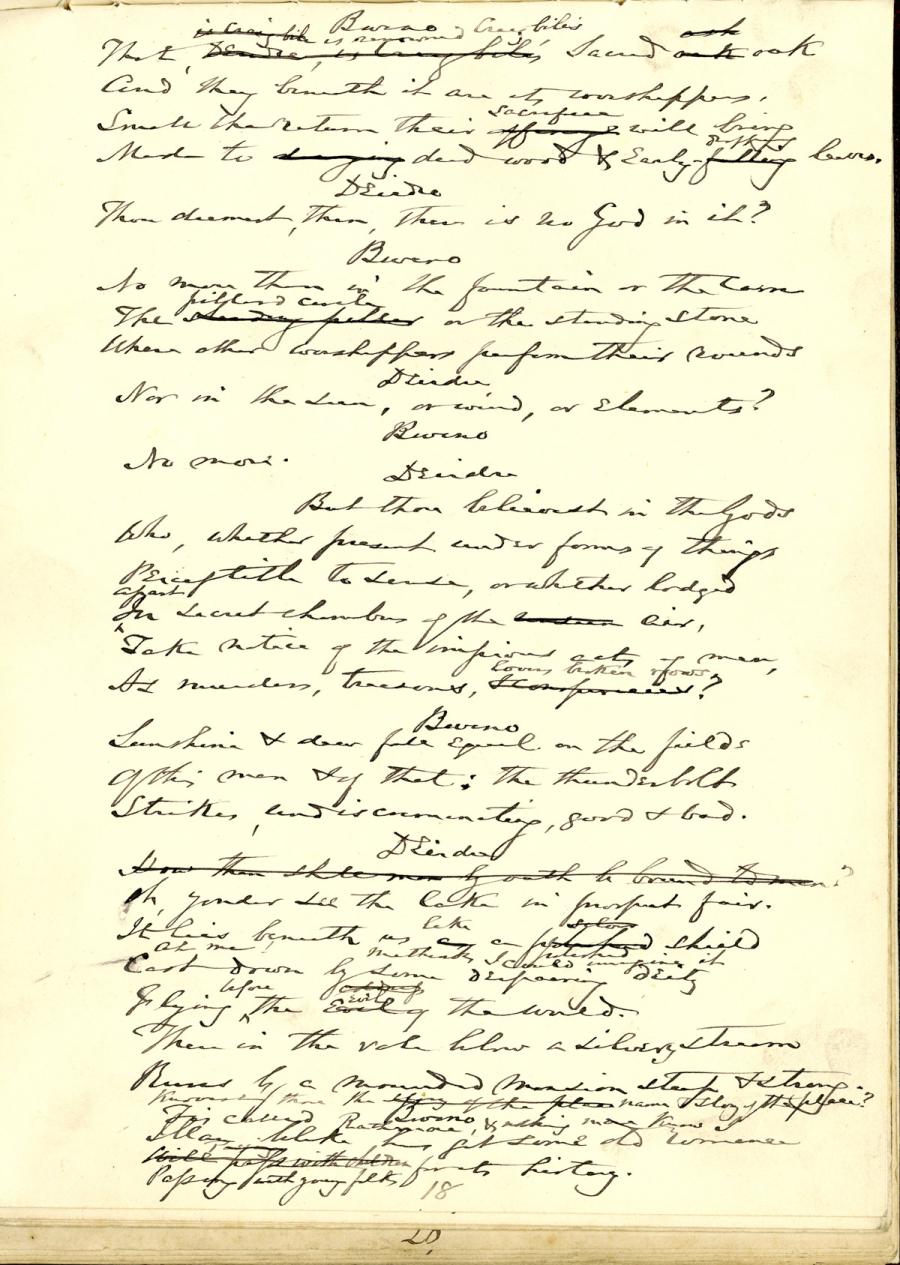 Buino
is Craig bile is renowned Creevebilis ash
That, Deirdre, is Craig bile's Sacred oak oak
And they beneath it are its worshippers.
sacrifice
Small the return their offerings will bring
Made to dead wood & Early-falling leaves.
Deirdre
Thou deemest, then, there is no God in it?
Buino
No more than in the fountain or the Cairn
pillar'd circle
The standing pillar or the standing stone
Where other worshippers perform their rounds
Deirdre
Nor in the Sun, or wind, or Elements?
Buino
No more.
Deirdre
But thou believest in the Gods
Who, whether present under forms of things
Perceptible to sense, or whether lodged
apart
In secret chambers of the unseen air,
Take notice of the impious acts of men,
Lovers broken vows
As murders, treasons, ?
Buino
Sunshine & dew fall Equal on the fields
Of this man & of that: the thunderbolt
Strikes, undiscriminating, good & bad.
Deirdre
How then shall men by oath be bound to men?
Oh, yonder see the lake in prospect fair.
like
It lies beneath us as a polished shield
Ah me methinks I could imagine it
Cast down by some despairing Deity
before
Flying the Evil of the world.
There in the vale below a silvery stream
Runs by a mounded mansion steep & strong.
Knowest thou the name & story of the place?
Buino
Tis called Rathmore, & asking more I know
Illan belike has got some old romance
Will pass with children for its history.
Passing with young folks
18
20.